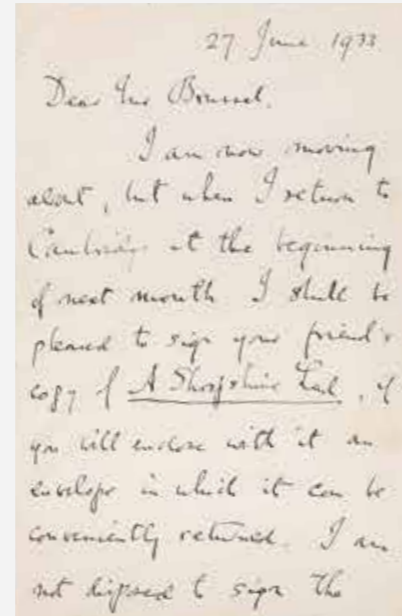 27 June 1933
Dear Mr Boussel,
I am now moving
about, but when I return to
Cambridge at the beginning
of next month I shall be
pleased to sign your friend's
copy of A Shropshire Lad, if
you will enclose with it an
envelope in which it can be
conveniently returned. I am
not disposed to sign the